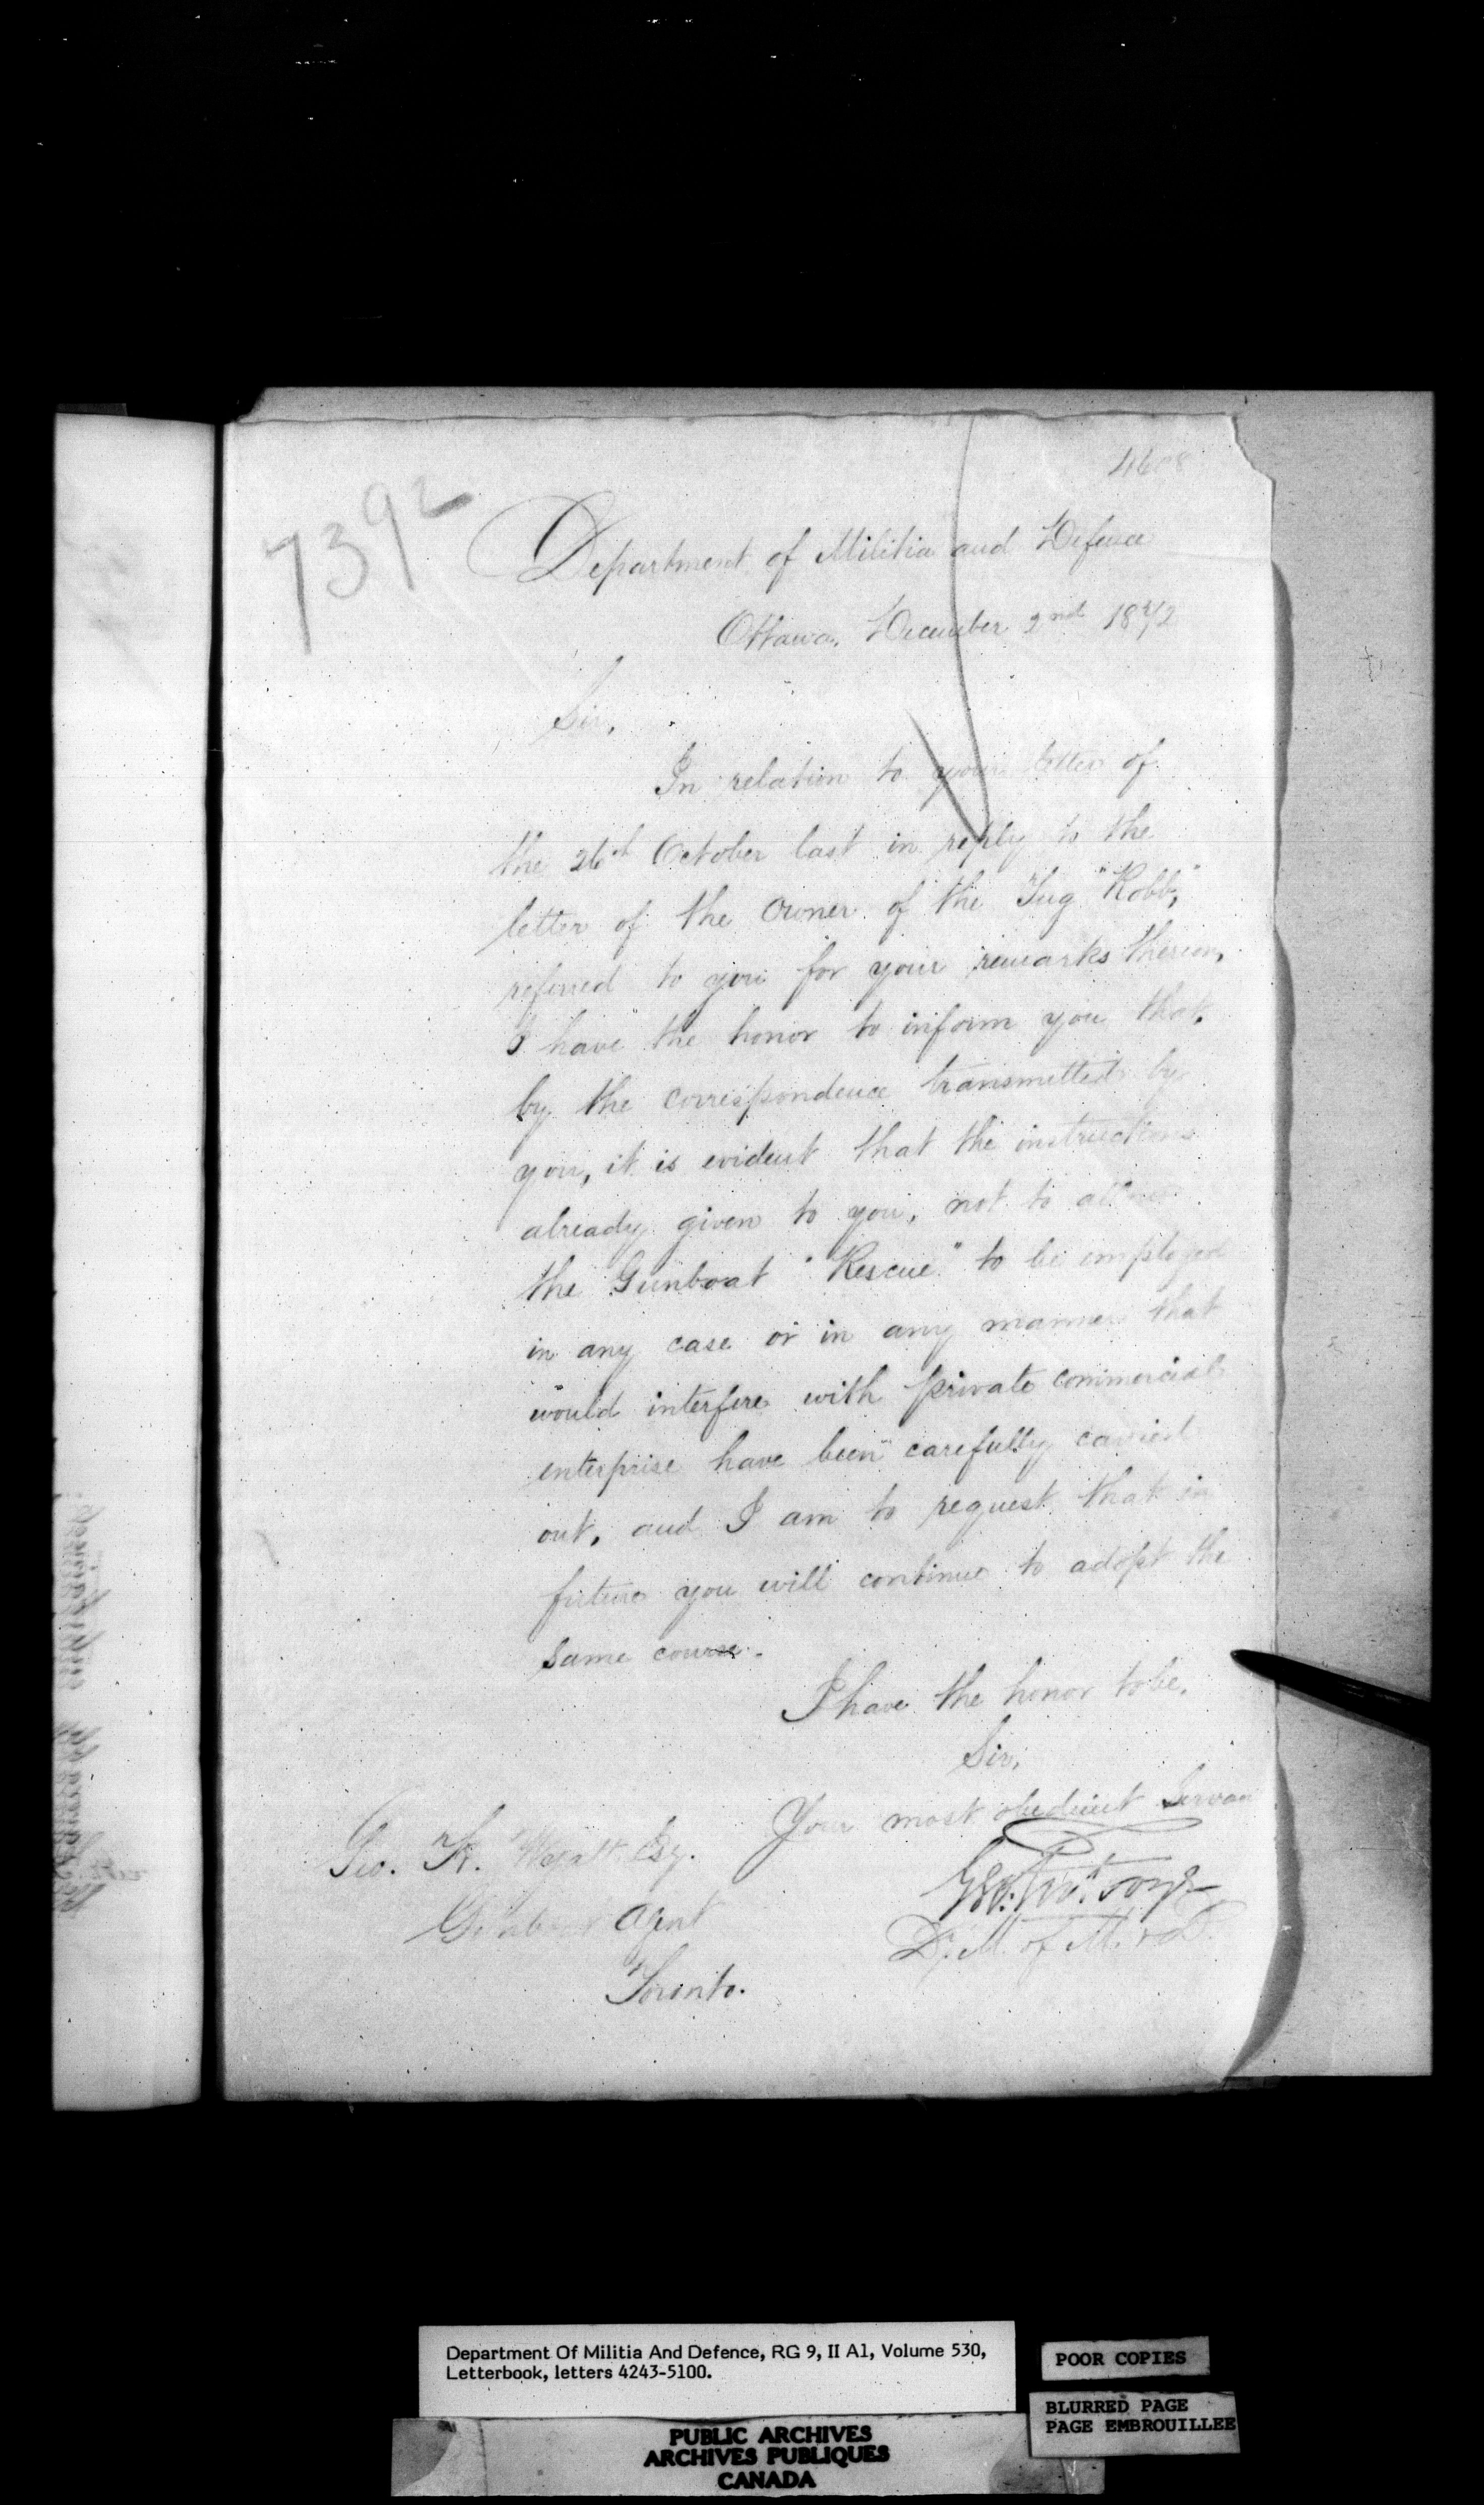 4608
7392
Department of Militia and Defence
Ottawa, December 2nd 1872
Sir,
In relation to your letter of
the 26th October last in reply to the
letter of the Owner of the Tug "Robb,"
referred to you for your remarks thereon,
I have the honor to inform you that,
by the correspondence transmitted by
you, it is evident that the instructions
already given to you, not to allow
the Gunboat "Rescue" to be employed
in any case or in any manner that
would interfere with private commercial
enterprise have been carefully carried
out, and I am to request that in
future you will continue to adopt the
same course.
I have the honor to be,
Sir,
Your most obedient Servan
Geo. Futvoye
D. M. of M. & D.
Geo. H. Wyatt Esq.
Gunboat Agent
Toronto.
Department Of Militia And Defence, RG 9, II A1, Volume 530,
Letterbook, letters 4243-5100.
POOR COPIES
BLURRED PAGE
PAGE EMBROUILLEE
PUBLIC ARCHIVES
ARCHIVES PUBLIQUES
CANADA